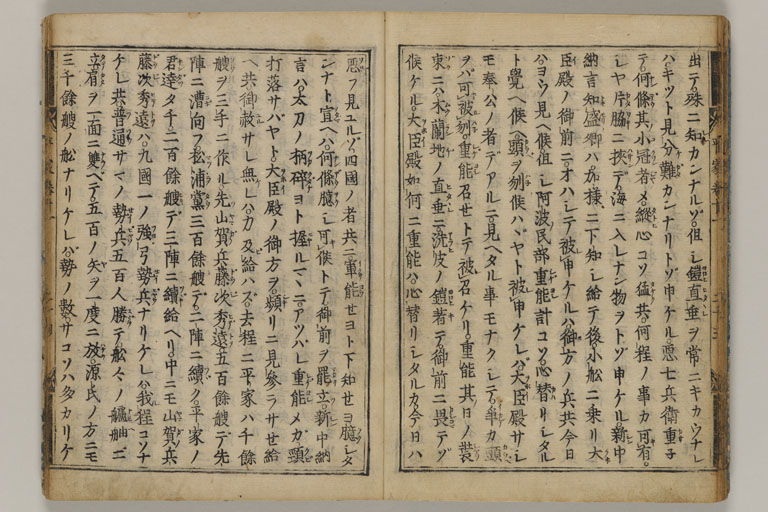 出テ殊ニ知カンナルソ但シ鎧直垂ヲ常ニキカウナレ
ハキツト見分難カンナリトソ申ケル悪七兵衛重子
テ何條其小冠者メ縦心コソ猛共何程ノ事カ可有
シヤ片脇ニ挾テ海ニ入レナン物ヲトソ申ケル新中
納言知盛卿ハ加様ニ下知シ給テ後小舩ニ乗リ大
臣殿ノ御前ニオハシテ被申ケルハ御方ノ兵共今日
ハヨウ見ヘ候但シ阿波民部重能計コソ心替リシタル
ト覺ヘ候ヘ頭ヲ刎候ハヽヤト被申ケレハ大臣殿サシ
モ奉公ノ者テアルニ見ヘタル事モナクシテ争カ頭
ヲハ可被刎重能召セトテ被召ケリ重能其日ノ装
束ニハ木蘭地ノ直垂ニ洗皮ノ鎧着テ御前ニ畏テソ
候ケル大臣殿如何ニ重能ハ心替リシタルカ今日ハ
悪フ見ユルソ四國ノ者共ニ軍能セヨト下知セヨ臆シタ
ンナト宣ヘハ何條臆シ可候トテ御前ヲ罷立新中納
言ハ太刀ノ柄碎ヨト握ルマヽニアツハレ重能メカ頸
打落サハヤト大臣殿ノ御方ヲ頻リニ見参ラサセ給
ヘ共御赦サレ無レハ力及給ハス去程ニ平家ハ千餘
艘ヲ三手ニ作ル先山賀兵藤次秀遠五百餘艘テ先
陣ニ漕向フ松浦黨三百餘艘テ二陣ニ續ク平家ノ
君達タチ二百餘艘テ三陣ニ續給ヘリ中ニモ山賀ノ兵
藤次秀遠ハ九國一ノ強弓勢兵ナリケレハ我程コソナ
ケレ共普通サマノ勢兵五百人勝テ舩々ノ艫舳ニ
立肩ヲ一面ニ雙ヘテ五百ノ矢ヲ一度ニ放源氏ノ方ニモ
三千餘艘ノ舩ナリケレハ勢ノ數サコソハ多カリケ